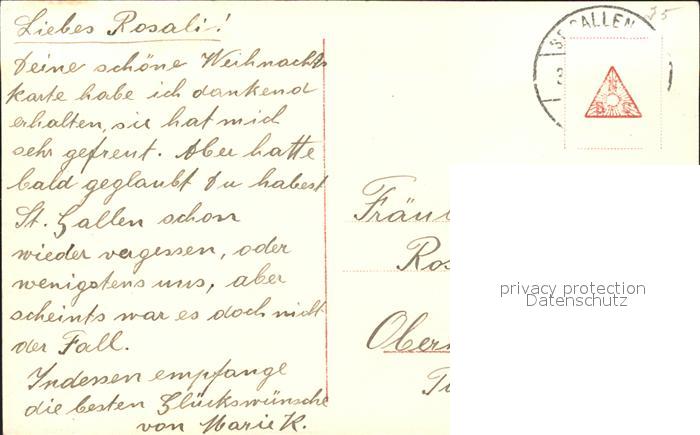 Liebes Rosali!
Deine schöne Weihnachts
karte habe ich dankend
erhalten, sie hat mich
sehr gefreut. Aber hatte
bald geglaubt Du habest
St. Gallen schon
wieder vergessen, oder
wenigstens uns, aber
scheints war es doch nicht
der Fall.
Indessen empfange
die besten Glückwünsche
von Marie K.
ST. GALLEN
75
N
B G
Fräu
Ros
Ober
privacy protection
Datenschutz